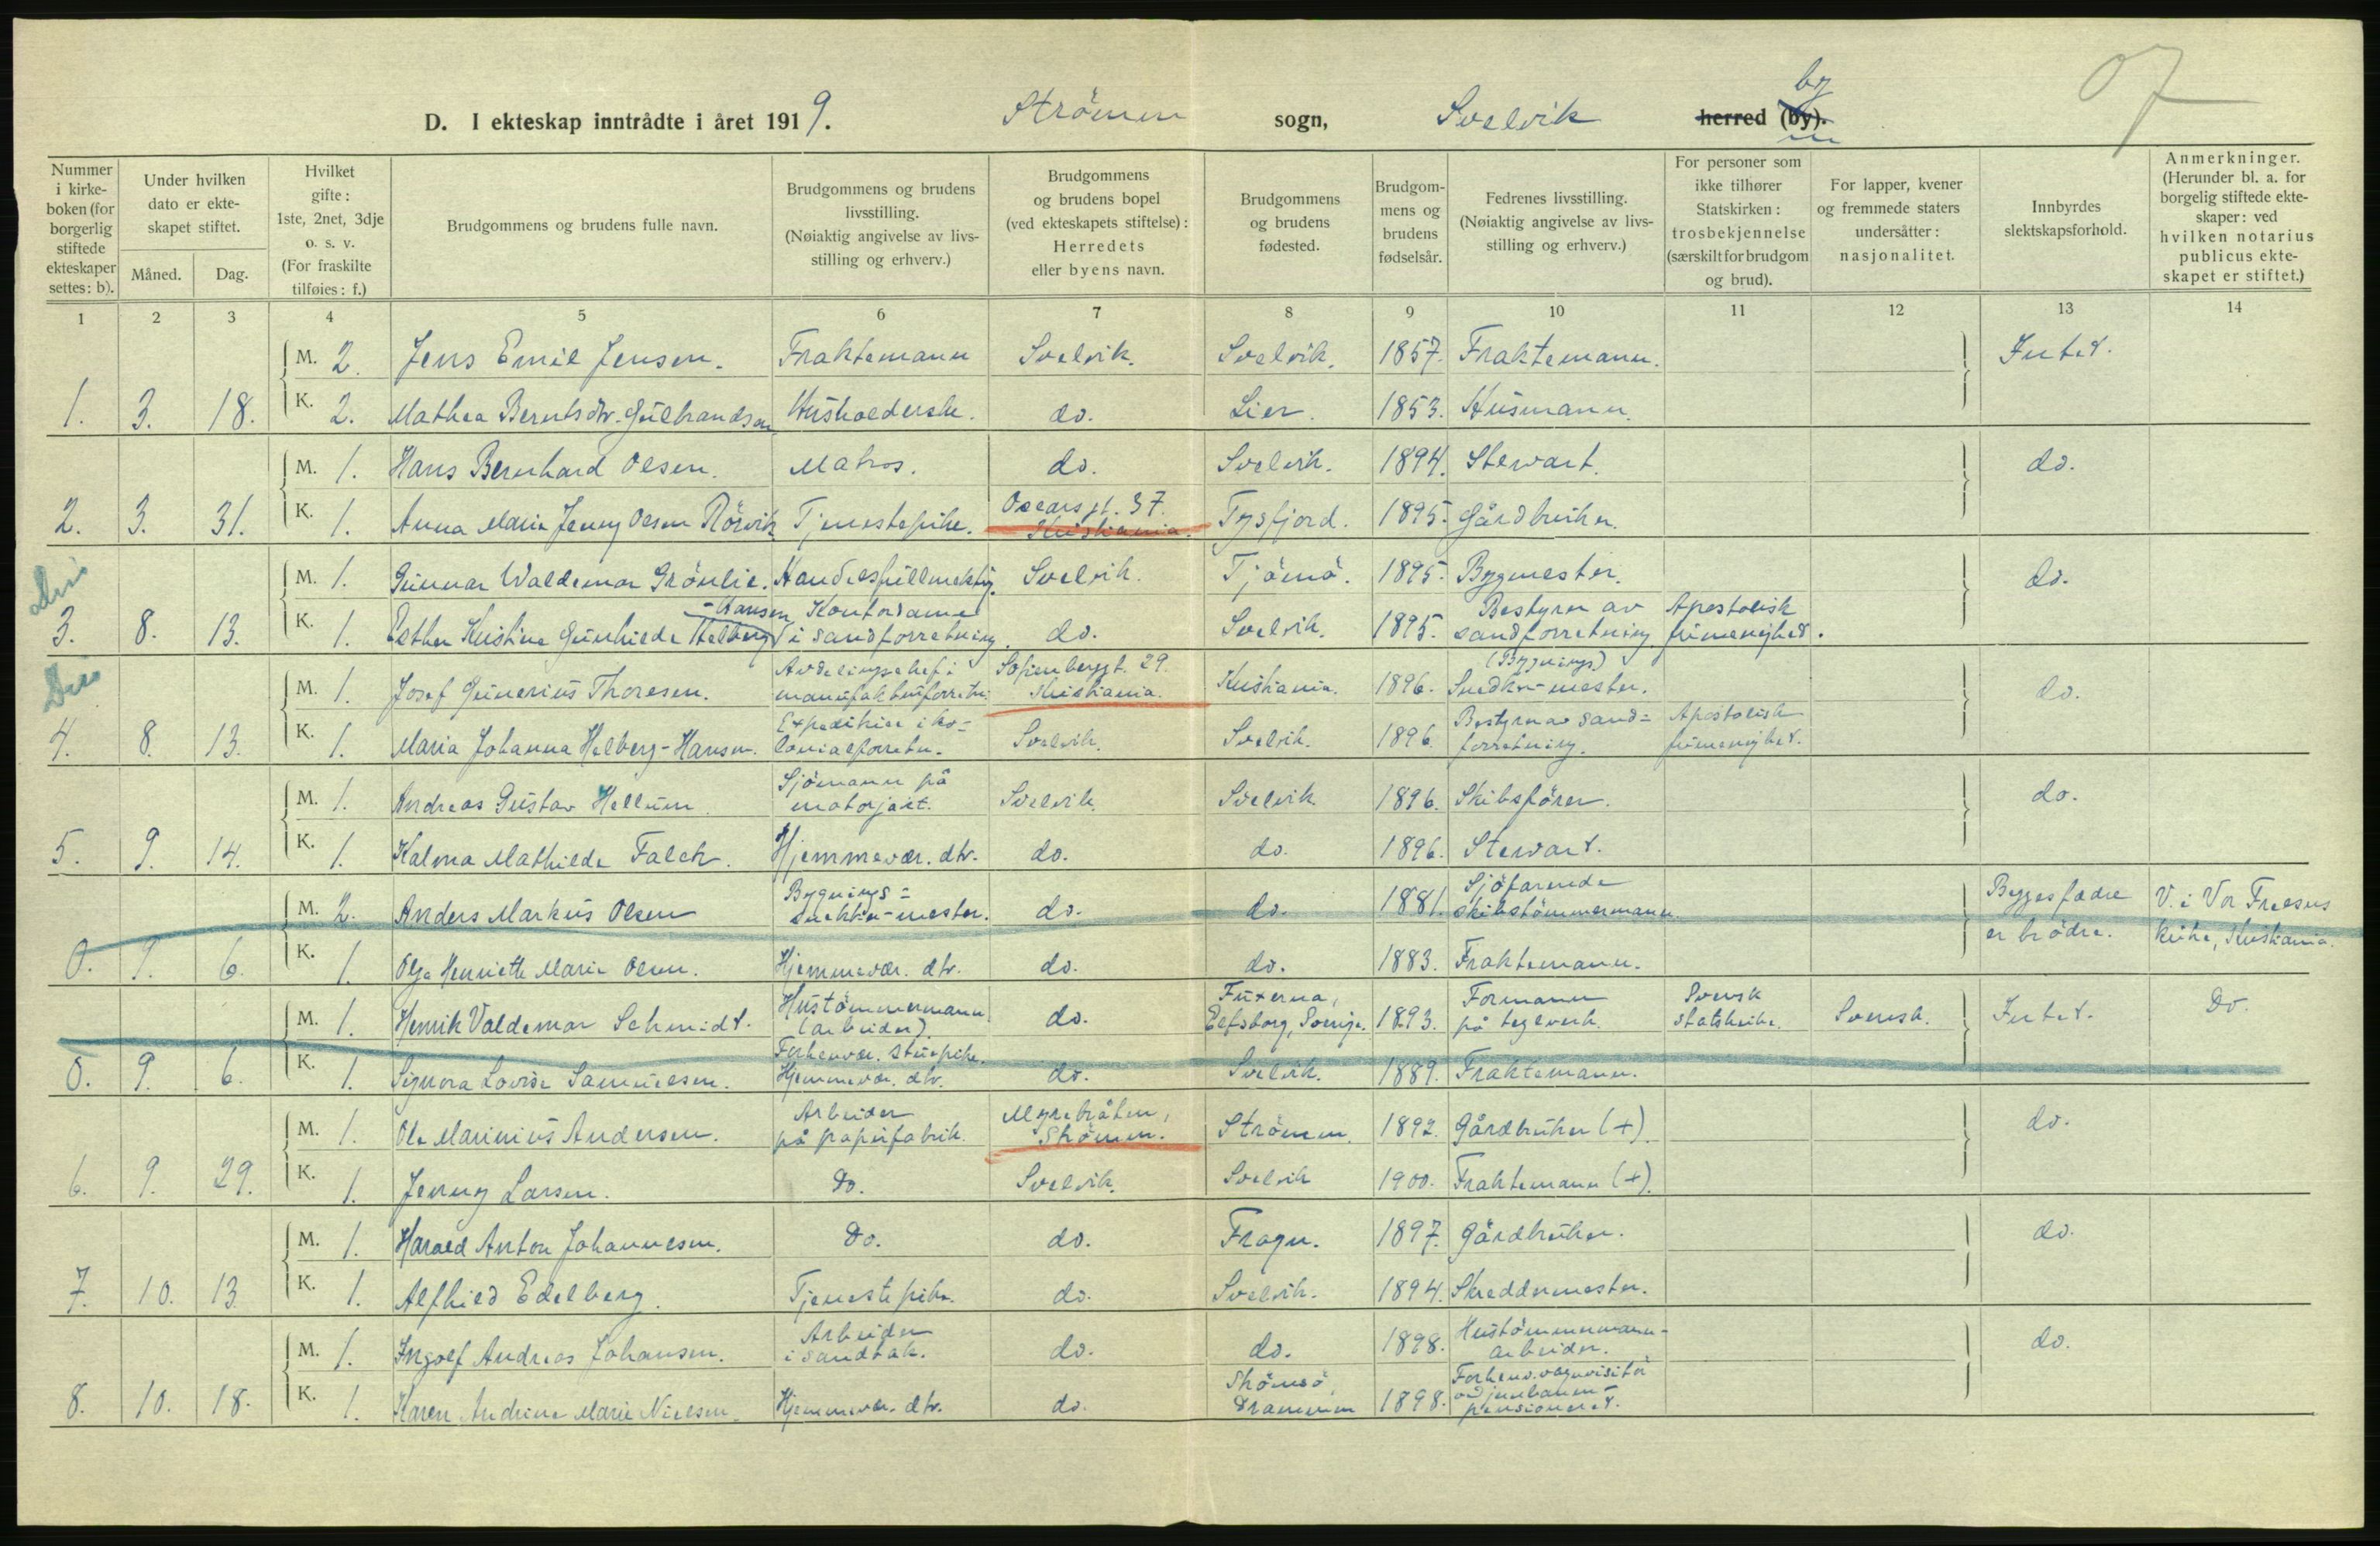 07
D. I ekteskap inntrådte i året 1919. Strömm sogn, Svelvik herred (by). by
Nummer i kirkeboken (for borgerlig stiftede ekteskaper settes: b).
Under hvilken dato er ekteskapet stiftet.
Måned. Dag.
Hvilket gifte: 1ste, 2net, 3dje o. s. v. (For fraskilte tilføies: f.)
Brudgommens og brudens fulle navn.
Brudgommens og brudens livsstilling. (Nøiaktig angivelse av livsstilling og erhverv.)
Brudgommens og brudens bopel (ved ekteskapets stiftelse): Herredets eller byens navn.
Brudgommens og brudens fødested.
Brudgommens og brudens fødselsår.
Fedrenes livsstilling. (Nøiaktig angivelse av livsstilling og erhverv.)
For personer som ikke tilhører Statskirken: trosbekjennelse (særskilt for brudgom og brud).
For lapper, kvener og fremmede staters undersåtter: nasjonalitet.
Innbyrdes slektskapsforhold.
Anmerkninger. (Herunder bl. a. for borgelig stiftede ekteskaper: ved hvilken notarius publicus ekteskapet er stiftet.)
1 2 3 4 5 6 7 8 9 10 11 12 13 14
M. 2. Jens Emil Jensen. Fraktemann Svelvik. Svelvik. 1857. Fraktemann. Intet.
1. 3. 18. K. 2. Mathea Berntsdtr. Gulbrandsen Husholderske. do. Lier. 1853. Husmann.
M. 1. Hans Bernhard Olsen. Matros. do. Svelvik. 1894. Stewart. do.
2. 3. 31. K. 1. Anna Marie Jenny Olsen Rörvik Tjenestepike. Oscarsgt. 37. Kristiania. Tysfjord. 1895. Gårdbruker.
M. 1. Gunnar Waldemar Grönlie. Handelsfullmektig. Svelvik. Tjömö. 1895. Bygmester. do.
3. 8. 13. K. 1. Esther Kristine Gunhilde Helberg-Hansen Kontordame i sandforretning. do. Svelvik. 1895. Bestyrer av sandforretning Apostolisk frimenighet.
M. 1. Josef Gunerius Thoresen. Avdelingschef i manufakturforretn. Sofienberggt. 29. Kristiania. Kristiania. 1896. (Bygnings) Snedker-mester. do.
4. 8. 13. K. 1. Maria Johanna Helberg-Hansen. Expeditrice i kolonialforretn. Svelvik. Svelvik. 1896. Bestyrer av sandforretning. Apostolisk frimenighet.
M. 1. Andreas Gustav Hellum. Sjömann på motorjakt. Svelvik. Svelvik. 1896. Skibsförer. do.
5. 9. 14. K. 1. Kalma Mathilde Falck. Hjemmevær. dtr. do. do. 1896. Stewart.
M. 2. Anders Markus Olsen Bygnings-snekker-mester. do. do. 1881. Sjöfarende skibstömmermann. Begges fedre er brödre. V. i Vor Frelsers kirke, Kristiania.
0. 9. 6. K. 1. Olga Henriette Marie Olsen. Hjemmevær. dtr. do. do. 1883. Fraktemann.
M. 1. Henrik Valdemar Schmidt. Hustömmermann (arbeider) do. Fuxerna, Elfsborg, Sverige. 1893. Formann på teglverk. Svensk statskirke. Svensk. Intet. Do.
0. 9. 6. K. 1. Signora Lovise Samuelsen. Forhenvær. stuepike. Hjemmevær. dtr. do. Svelvik. 1889. Fraktemann.
M. 1. Ole Marinius Andersen. Arbeider på papirfabrik. Myrebråten, Strömm. Strömm. 1892. Gårdbruker (+). do.
6. 9. 29. K. 1. Jenny Larsen. Do. Svelvik. Svelvik 1900. Fraktemann (+).
M. 1. Harald Anton Johannesen. Do. do. Frogn. 1897. Gårdbruker. do.
7. 10. 13. K. 1. Alfhild Edelberg. Tjenestepike. do. Svelvik. 1894. Skreddermester.
M. 1. Ingolf Andreas Johansen. Arbeider i sandtak. do. do. 1898. Hustömmermann-arbeider. do.
8. 10. 18. K. 1. Karen Andrine Marie Nielsen. Hjemmevær. dtr. do. Strömsö, Drammen 1898. Forhenv. vognvisitör ved jernbanen - pensionert.